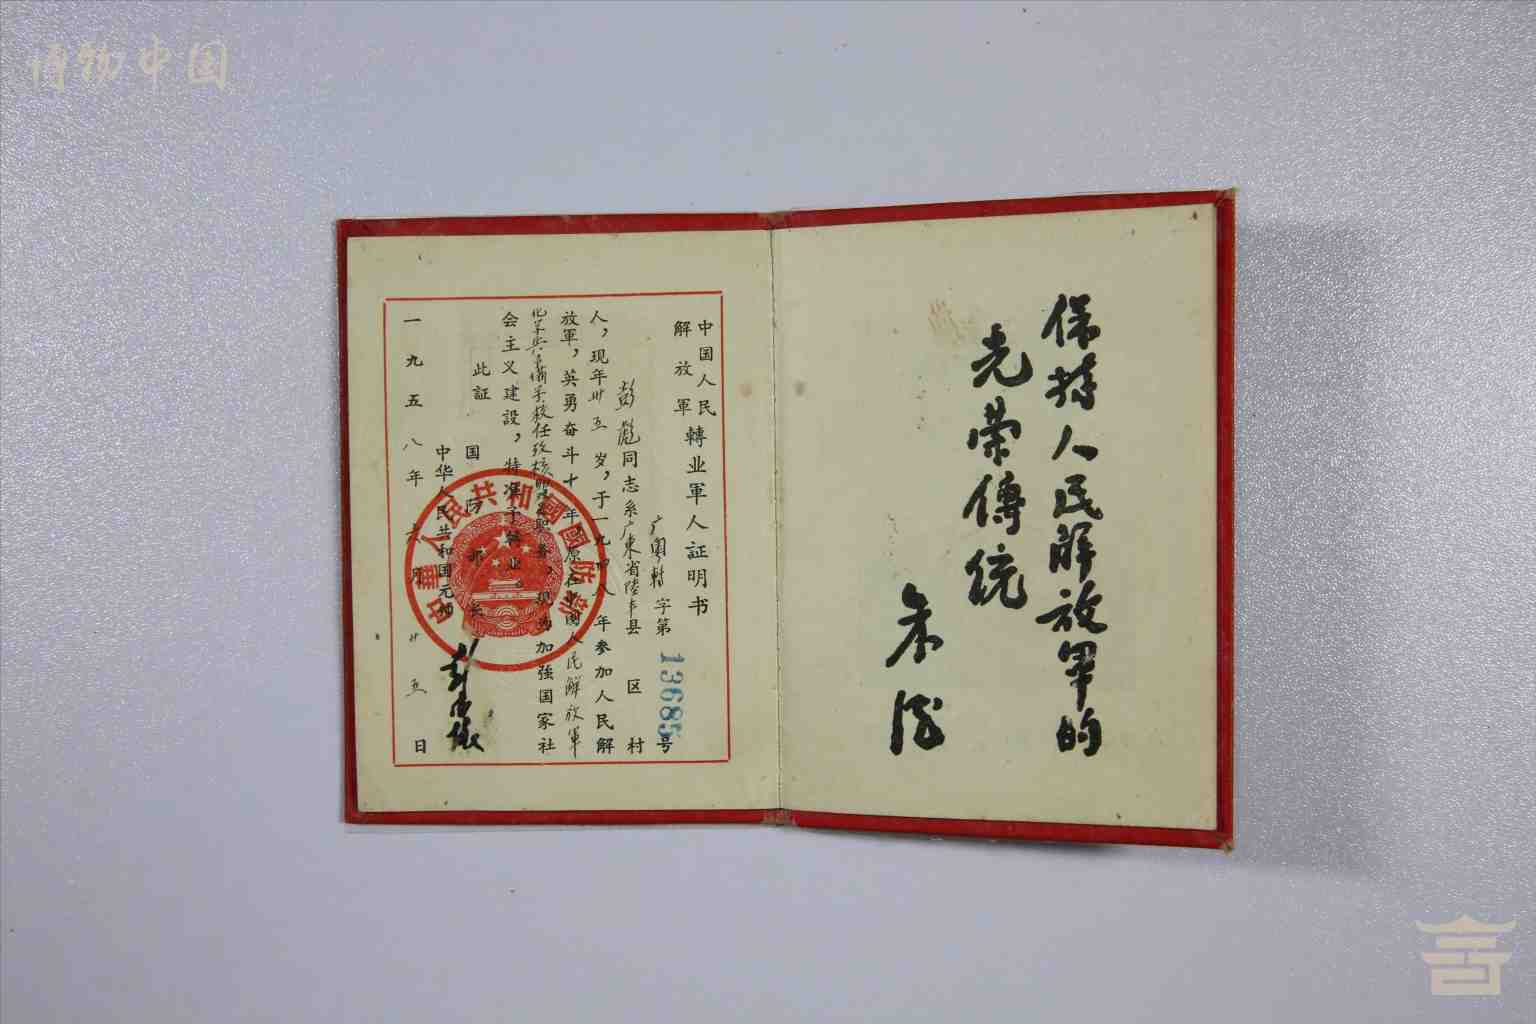 博物中国
保持人民解放军的
光荣傳統
朱德
中国人民
解放軍
轉业軍人证明书
字第13685号
彭彪同志系广東省陸丰县 区 村
人，现年卅五岁，于一九四八年参加人民解
放軍，英勇奋斗十年，原在中国人民解放軍
任 职务，现为加强国家社
会主义建設，特准予轉业。
此证
国防部长
中华人民共和国元帅
彭德怀
一九五八年六月廿五日
中華人民共和國國防部